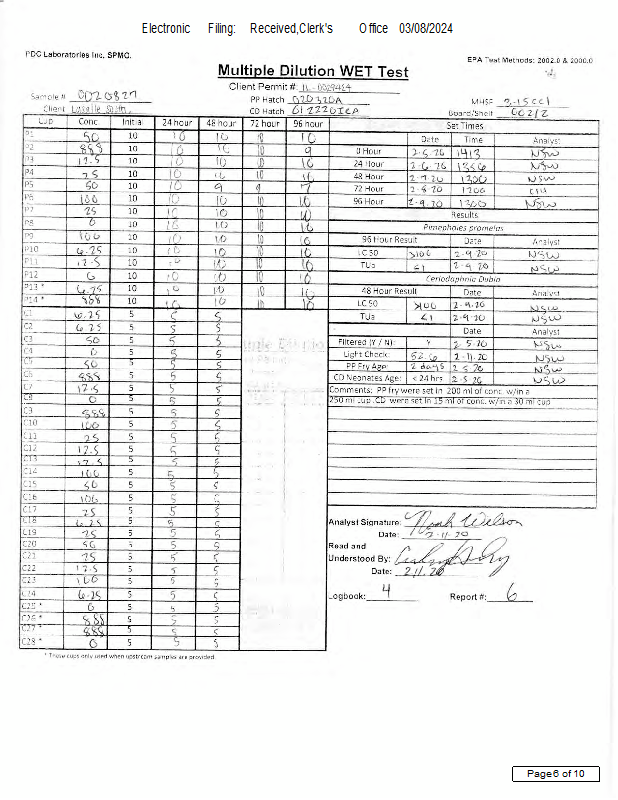 Electronic Filing: Received,Clerk's Office 03/08/2024
PDC Laboratories Inc, SPMO.
EPA Test Methods: 2002.0 & 2000.0
Multiple Dilution WET Test
Client Permit #: IL-0029424
Sample # 0020827
PP Hatch 020320A
MHSF 2-15CC1
Client Lasalle
CD Hatch
Board/Shelf
Cup Conc. Initial 24 hour 48 hour 72 hour 96 hour
Set Times
P1 50 10 10 10 10 10
Date Time Analyst
P2 888 10 10 10 10 9
0 Hour 2-5-20 1413 NSW
P3 12.5 10 10 10 10 10
24 Hour 2-6-20 1356 NSW
P4 25 10 10 10 10 10
48 Hour 2-7-20 1300 NSW
P5 50 10 10 9 9 7
72 Hour 2-8-20 1200
P6 100 10 10 10 10 10
96 Hour 2-9-20 1300 NSW
P7 25 10 10 10 10 10
Results
P8 0 10 10 10 10 10
Pimephales promelas
P9 100 10 10 10 10 10
96 Hour Result Date Analyst
P10 6.25 10 10 10 10 10
LC50 >100 2-9-20 NSW
P11 12.5 10 10 10 10 10
TUa <1 2-9-20 NSW
P12 0 10 10 10 10 10
Ceriodaphnia Dubia
P13 * 6.25 10 10 10 10 10
48 Hour Result Date Analyst
P14 * 888 10 10 10 10 10
LC50 >100 2-9-20 NSW
C1 6.25 5 5 5
TUa <1 2-9-20 NSW
C2 6.25 5 5 5
Date Analyst
C3 50 5 5 5
Filtered (Y / N): Y 2-5-20 NSW
C4 0 5 5 5
Light Check: 52.6 2-11-20 NSW
C5 50 5 5 5
PP Fry Age: 2 days 2-5-20 NSW
C6 888 5 5 5
CD Neonates Age: <24 hrs 2-5-20 NSW
C7 12.5 5 5 5
Comments: PP fry were set in 200 ml of conc. w/in a
C8 0 5 5 5
250 ml cup. CD were set in 15 ml of conc. w/in a 30 ml cup
C9 888 5 5 5
C10 100 5 5 5
C11 25 5 5 5
C12 12.5 5 5 5
C13 12.5 5 5 5
C14 100 5 5 5
C15 50 5 5 5
C16 100 5 5 5
C17 25 5 5 5
C18 6.25 5 5 5
Analyst Signature: Noah Wilson
C19 25 5 5 5
Date: 2-11-20
C20 50 5 5 5
Read and
C21 25 5 5 5
Understood By:
C22 12.5 5 5 5
Date: 2/11/20
C23 100 5 5 5
C24 6.25 5 5 5
Logbook: 4 Report #: 6
C25 * 0 5 5 5
C26 * 888 5 5 5
C27 * 888 5 5 5
C28 * 0 5 5 5
* These cups only used when upstream samples are provided.
Page 6 of 10